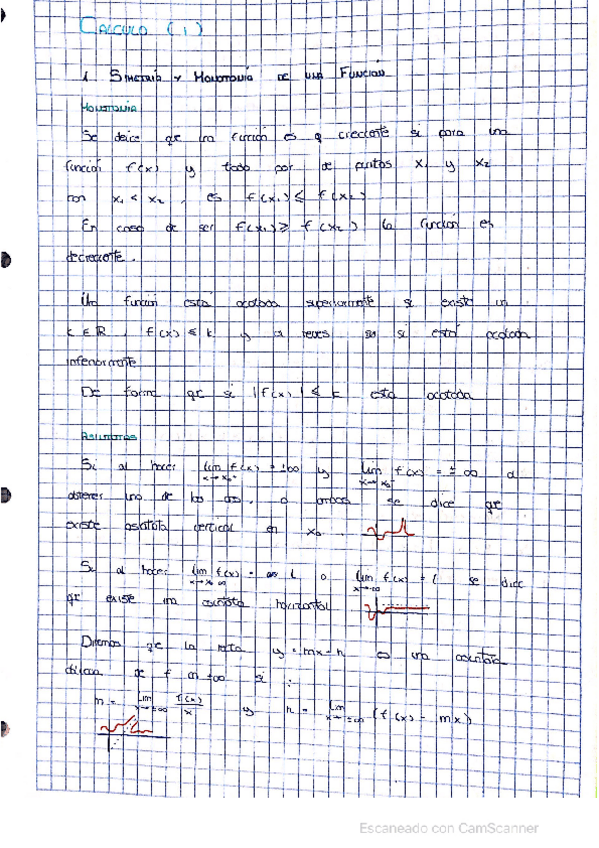 CALCULO (1)
1. SIMETRÍA Y MONOTONÍA DE UNA FUNCIÓN
MONOTONIA
Se dice que una función es creciente si para una
función f(x) y todo par de puntos x₁ y x₂
con x₁ < x₂, es f(x₁) ≤ f(x₂)
En caso de ser f(x₁) ≥ f(x₂) la función es
decreciente.
Un función está acotada superiormente si existe un
k ∈ ℝ, f(x) ≤ k y al reves si está acotada
inferiormente
De forma que si |f(x)| ≤ k esta acotada
ASINTOTAS
Si al hacer lim f(x) = ±∞ y lim f(x) = ±∞ al
obtener uno de los dos, o ambos se dice que
existe asintota vertical en x₀.
Si al hacer lim f(x) = l o lim f(x) = l se dice
que existe una asintota horizontal
Diremos que la recta y = mx + n es una asintota
oblicua de f en ±∞ si:
m = lim x→±∞ f(x)/x y n = lim x→±∞ (f(x) - mx)
Escaneado con CamScanner